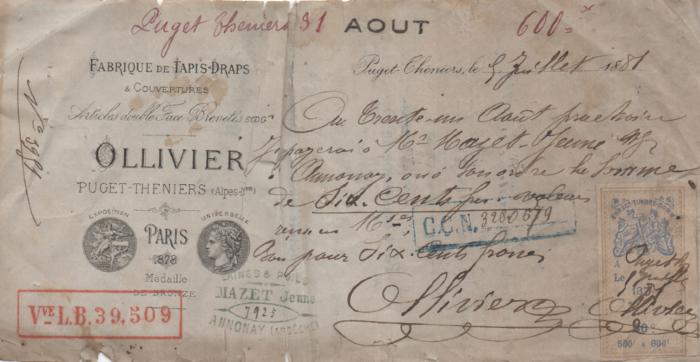 Puget Theniers 31 AOUT 600=
FABRIQUE DE TAPIS-DRAPS
& COUVERTURES
Articles double Face Brevetés SGDG
OLLIVIER
PUGET-THENIERS (Alpes-Mmes)
EXPOSITION UNIVERSELLE
PARIS
1878
Médaille
DE BRONZE
Vve L.B. 39,509
Puget-Theniers, le 5 Juillet 1881
Au trente-un Août prochain
Je payerai à Mr Mazet-Jeune Mg
Annonay, ou à son ordre la Somme
de Six-Cents frs valeur
en Mses
C.C.N. 3260679
Bon pour Six-Cents francs
Ollivier
LAINES & POILS
MAZET Jeune
7923
ANNONAY (ARDÈCHE)
A
Le
Ollivier
500f à 600f